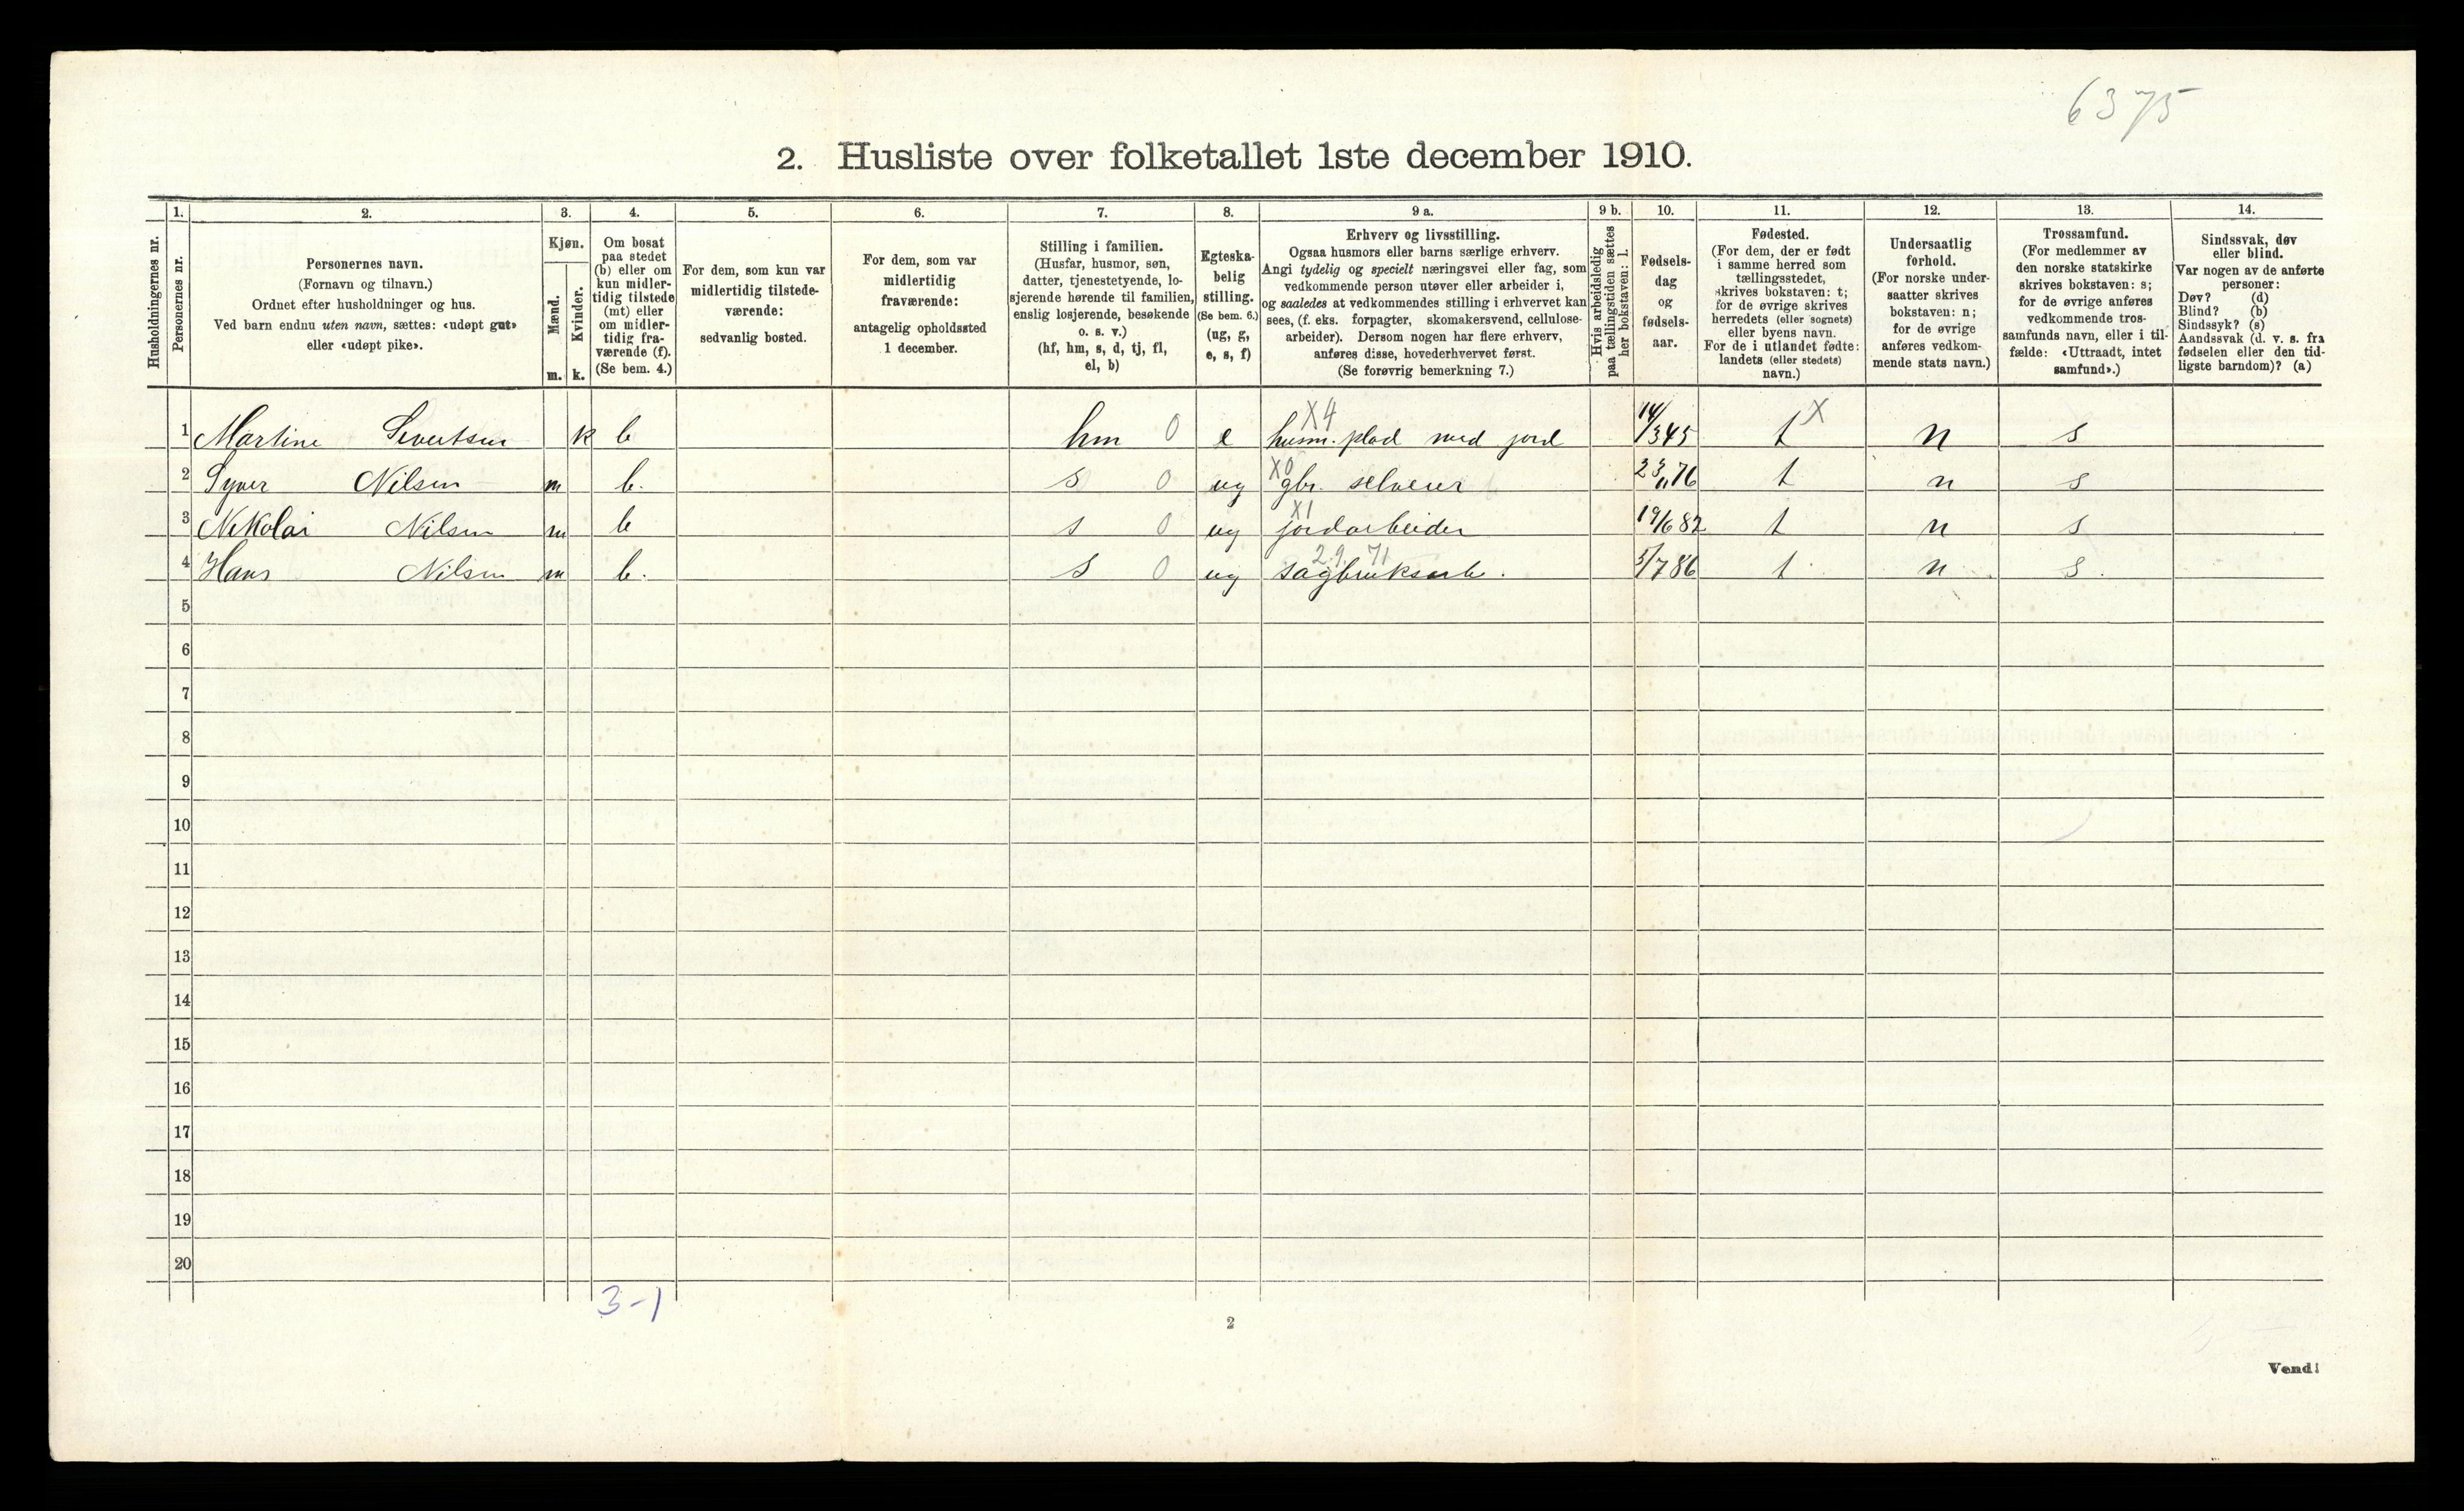 6375
2. Husliste over folketallet 1ste december 1910.
Husholdningernes nr.
1.
Personernes nr.
2.
Personernes navn.
(Fornavn og tilnavn.)
Ordnet efter husholdninger og hus.
Ved barn endnu uten navn, sættes: «udøpt gut»
eller «udøpt pike».
3.
Kjøn.
Mænd.
m.
Kvinder.
k.
4.
Om bosat
paa stedet
(b) eller om
kun midler-
tidig tilstede
(mt) eller
om midler-
tidig fra-
værende (f).
(Se bem. 4.)
5.
For dem, som kun var
midlertidig tilstede-
værende:
sedvanlig bosted.
6.
For dem, som var
midlertidig
fraværende:
antagelig opholdssted
1 december.
7.
Stilling i familien.
(Husfar, husmor, søn,
datter, tjenestetyende, lo-
sjerende hørende til familien,
enslig losjerende, besøkende
o. s. v.)
(hf, hm, s, d, tj, fl,
el, b)
8.
Egteska-
belig
stilling.
(Se bem. 6.)
(ug, g,
e, s, f)
9 a.
Erhverv og livsstilling.
Ogsaa husmors eller barns særlige erhverv.
Angi tydelig og specielt næringsvei eller fag, som
vedkommende person utøver eller arbeider i,
og saaledes at vedkommendes stilling i erhvervet kan
sees, (f. eks. forpagter, skomakersvend, cellulose-
arbeider). Dersom nogen har flere erhverv,
anføres disse, hovederhvervet først.
(Se forøvrig bemerkning 7.)
9 b.
Hvis arbeidsledig
paa tællingstiden sættes
her bokstaven: l.
10.
Fødsels-
dag
og
fødsels-
aar.
11.
Fødested.
(For dem, der er født
i samme herred som
tællingsstedet,
skrives bokstaven: t;
for de øvrige skrives
herredets (eller sognets)
eller byens navn.
For de i utlandet fødte:
landets (eller stedets)
navn.)
12.
Undersaatlig
forhold.
(For norske under-
saatter skrives
bokstaven: n;
for de øvrige
anføres vedkom-
mende stats navn.)
13.
Trossamfund.
(For medlemmer av
den norske statskirke
skrives bokstaven: s;
for de øvrige anføres
vedkommende tros-
samfunds navn, eller i til-
fælde: «Uttraadt, intet
samfund».)
14.
Sindssvak, døv
eller blind.
Var nogen av de anførte
personer:
Døv? (d)
Blind? (b)
Sindssyk? (s)
Aandssvak (d. v. s. fra
fødselen eller den tid-
ligste barndom)? (a)
X4 X
1 Martine Sivertsen k b hm 0 e husm. plad med jord 14/3 45 t n s
X0
2 Syver Nilsen m b. s 0 ug gbr. selveier 23/11 76 t n s
X1
3 Nikolai Nilsen m b s 0 ug jordarbeider 19/6 82 t n s
29 71
4 Hans Nilsen m b. s 0 ug sagbruksarb. 5/7 86 t n s.
5
6
7
8
9
10
11
12
13
14
15
16
17
18
19
20
3-1
2
Vend!